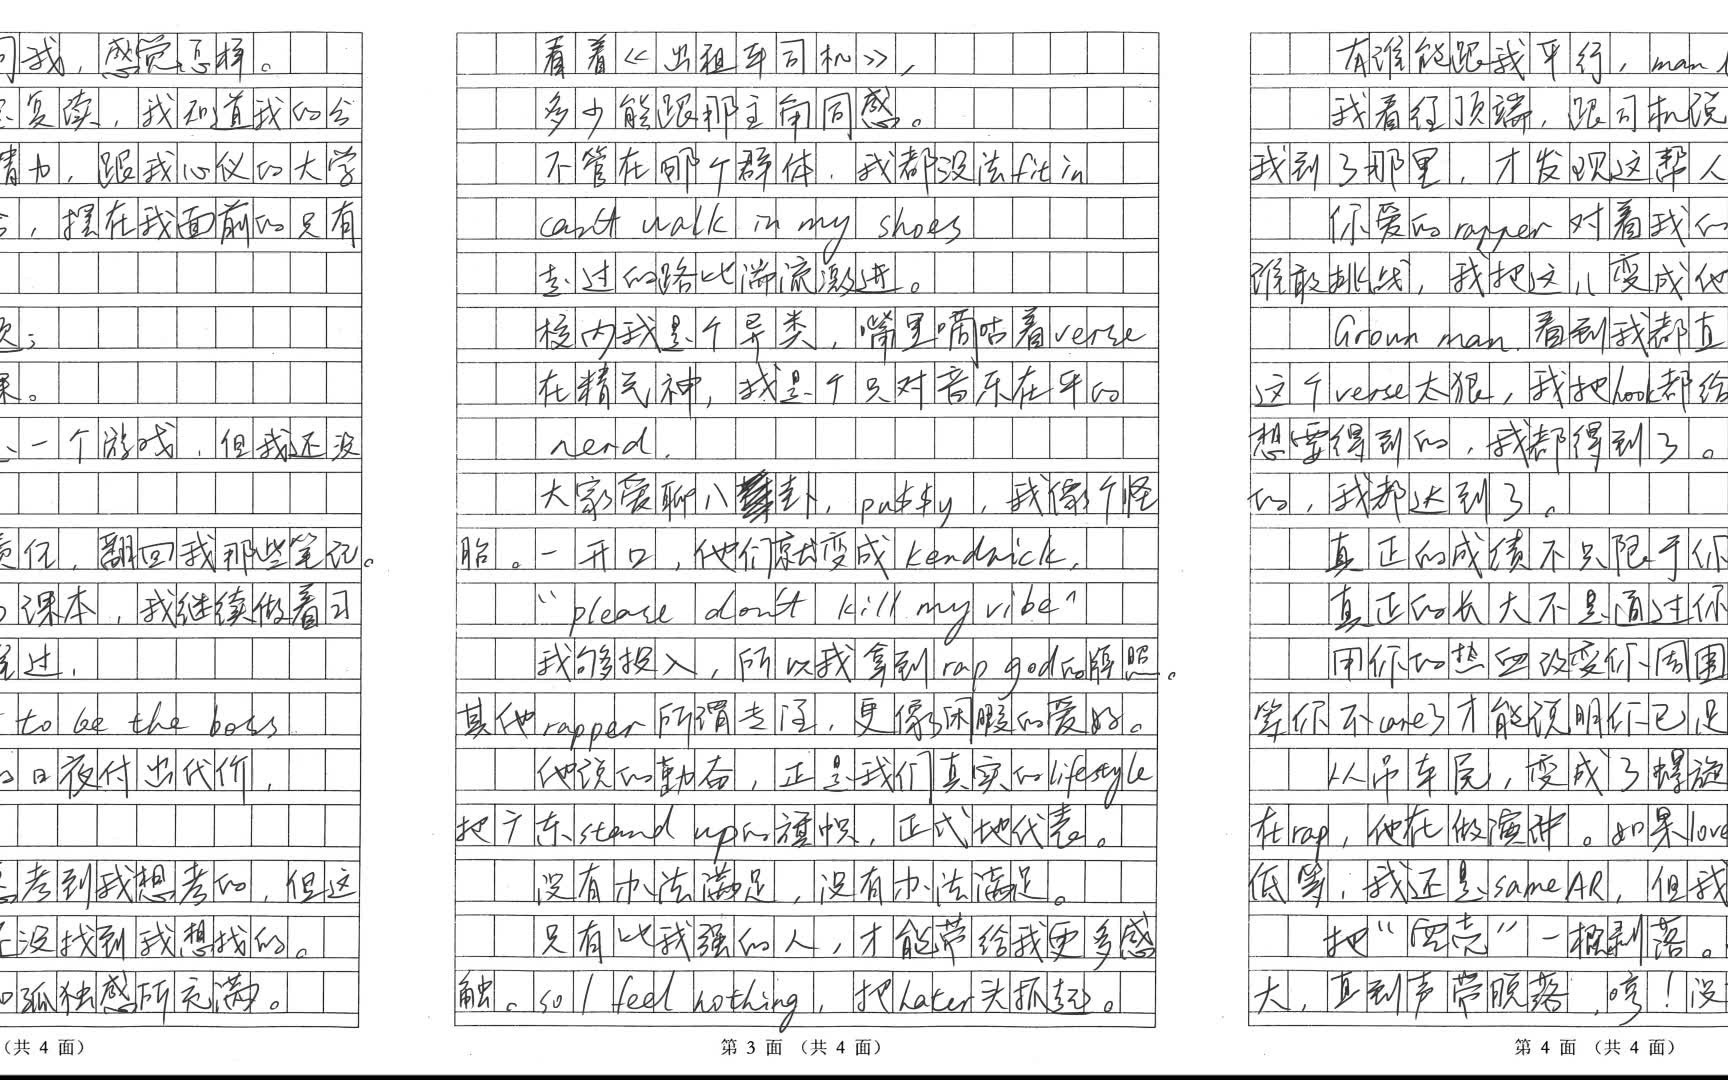 问我，感觉怎样。
复读，我知道我的分
精力，跟我心仪的大学
，摆在我面前的只有
题；
果。
一个游戏，但我还没
责任，翻回我那些笔记。
课本，我继续做着习
to be the boss
日夜付出代价，
考到我想考的，但这
还没找到我想找的。
孤独感所充满。
（共 4 面）
看着《出租车司机》，
多少能跟那主角同感。
不管在哪个群体，我都没法fit in
can't walk in my shoes
走过的路比湍流激进。
校内我是个异类，嘴里嘀咕着verse
在精气神，我是个只对音乐在乎的
nerd.
大家爱聊八卦，pu$$y，我像个怪
胎。一开口，他们就变成kendrick，
“please don't kill my vibe”
我够投入，所以我拿到rap god的牌照。
其他rapper所谓专注，更像闲暇的爱好。
他说的勤奋，正是我们真实的lifestyle
把广东stand up的旗帜，正式地代表。
没有办法满足，没有办法满足。
只有比我强的人，才能带给我更多感
触。so I feel nothing，把hater头抓起。
第 3 面 （共 4 面）
有谁能跟我平行，man
我看往顶端，跟司机说
我到了那里，才发现这帮人
你爱的rapper对着我的
谁敢挑战，我把这儿变成他
Grown man. 看到我都直
这个verse太狠，我把hook都给
想要得到的，我都得到了。
的，我都达到了。
真正的成绩不只限于你
真正的长大不是通过你
用你的热血改变你周围
等你不care了才能说明你已足
从吊车尾，变成了螺旋
在rap，他在做演讲。如果love
低等，我还是same AR，但我
把“空壳”一概剥落。
大，直到声带脱落，哼！没
第 4 面 （共 4 面）